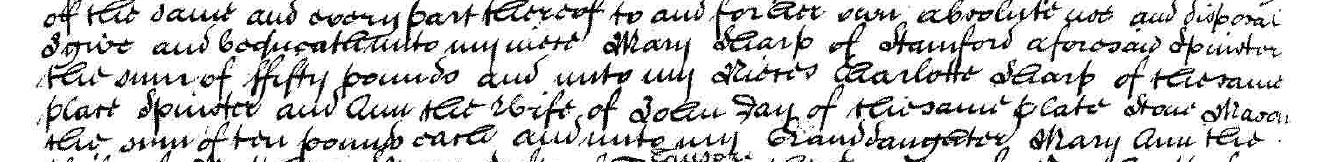 of the same and every part thereof to and for her own absolute use and disposal
I give and bequeath unto my niece Mary Sharp of Stamford aforesaid Spinster
the sum of ffifty pounds and unto my Nieces Charlotte Sharp of the same
place Spinster and Ann the Wife of John Fay of the same place Stone Mason
the sum of ten pounds each and unto my Granddaughter Mary Ann the